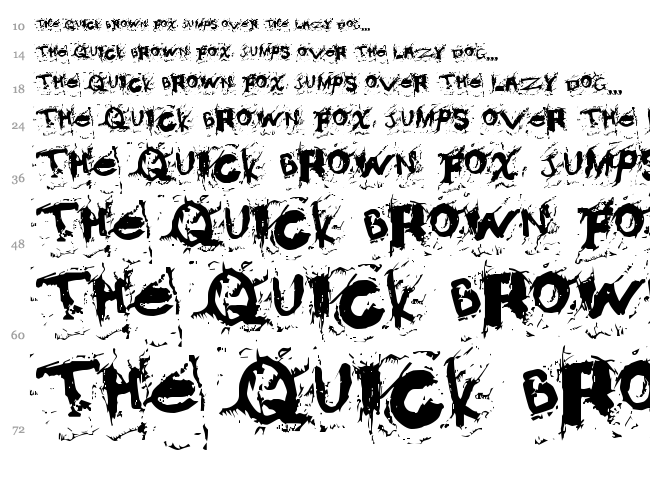 10 THE QUICK BROWN FOX JUMPS OVER THE LAZY DOG...
14 THE QUICK BROWN FOX JUMPS OVER THE LAZY DOG...
18 THE QUICK BROWN FOX JUMPS OVER THE LAZY DOG...
24 THE QUICK BROWN FOX JUMPS OVER THE
36 THE QUICK BROWN FOX JUMPS
48 THE QUICK BROWN FO
60 THE QUICK BROW
72 THE QUICK BRO